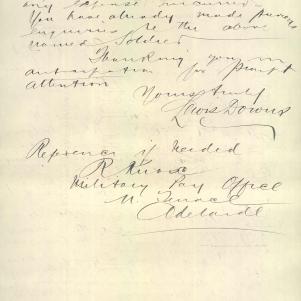 any expense incurred
You have already made
enquiries re the above
named Soldier
Thanking you in
anticipation for prompt
attention
Yours truly
Lewis Downs
Reference if needed
R
Military Pay Office
Adelaide